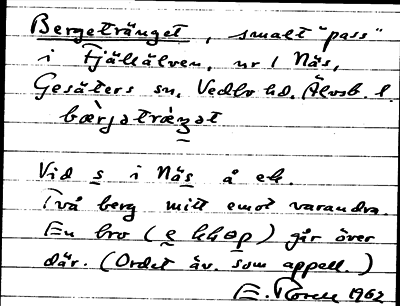 Bergetränget, smalt "pass"
i Fjällälven, nr 1 Näs,
Gesäters sn, Vedbo hd. Älvsb. l.
Vid s i Näs å ek.
Två berg mitt emot varandra.
En bro ( ) går över
där. (Ordet äv. som appell.)
E. 1962